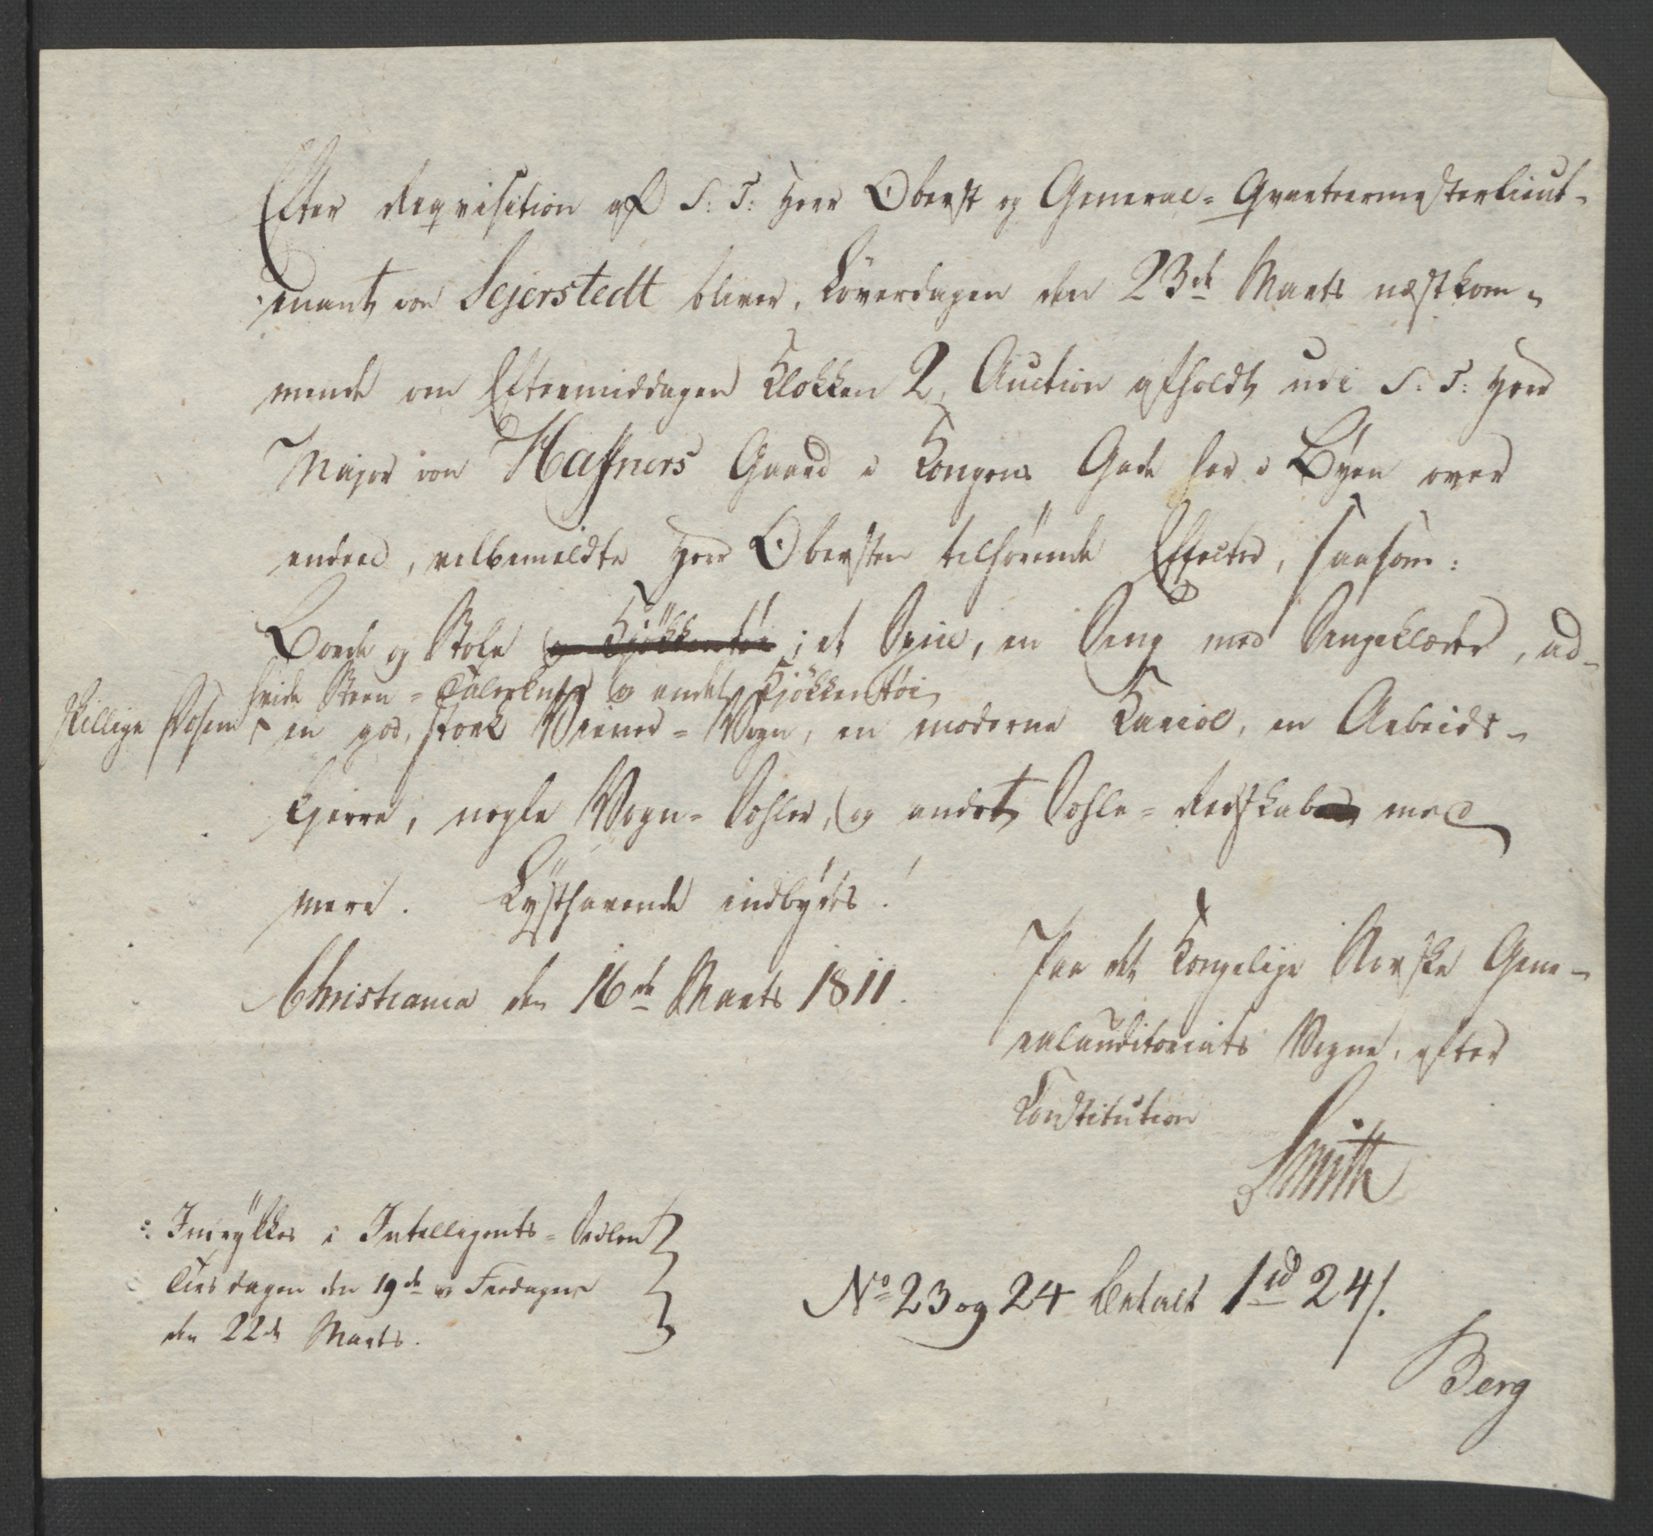 Efter Reqvisition af S: T: Herr Oberst og General- Qvarteermesterlieut-
nant von Sejersted bliver, Løverdagen den 23de Marts næstkom-
mende om Eftermiddagen Klokken 2, Auction afholdt udi S: T: Herr
Major von Haffners Gaard i Kongens Gade her i Byen over
endeel, velbemeldte Herr Obersten tilhørende Effecter, saasom:
Borde og Stole og Kjøkkentøi; et Speil, en Seng med Sengeklæder, ad-
hvide Steen-Tallerkner og endel Kjøkkentøi
skillige Posem en god, stærk Wiener-Vogn, en moderne Kariol, en Arbeids-
kjerre, nogle Vogn-Sehler, og andet Sehle-Redskab med
mere. Lysthavende indbydes!
Christiania den 16de Marts 1811.
Paa det Kongelige Norske Gene-
ralauditoriats Vegne, efter
Constitution
Smith
Indrykkes i Intelligents-Sedlen
Tirsdagen den 19de og Fredagen
den 22de Marts.
No 23 og 24 betalt 1 rd 24 s.
Berg